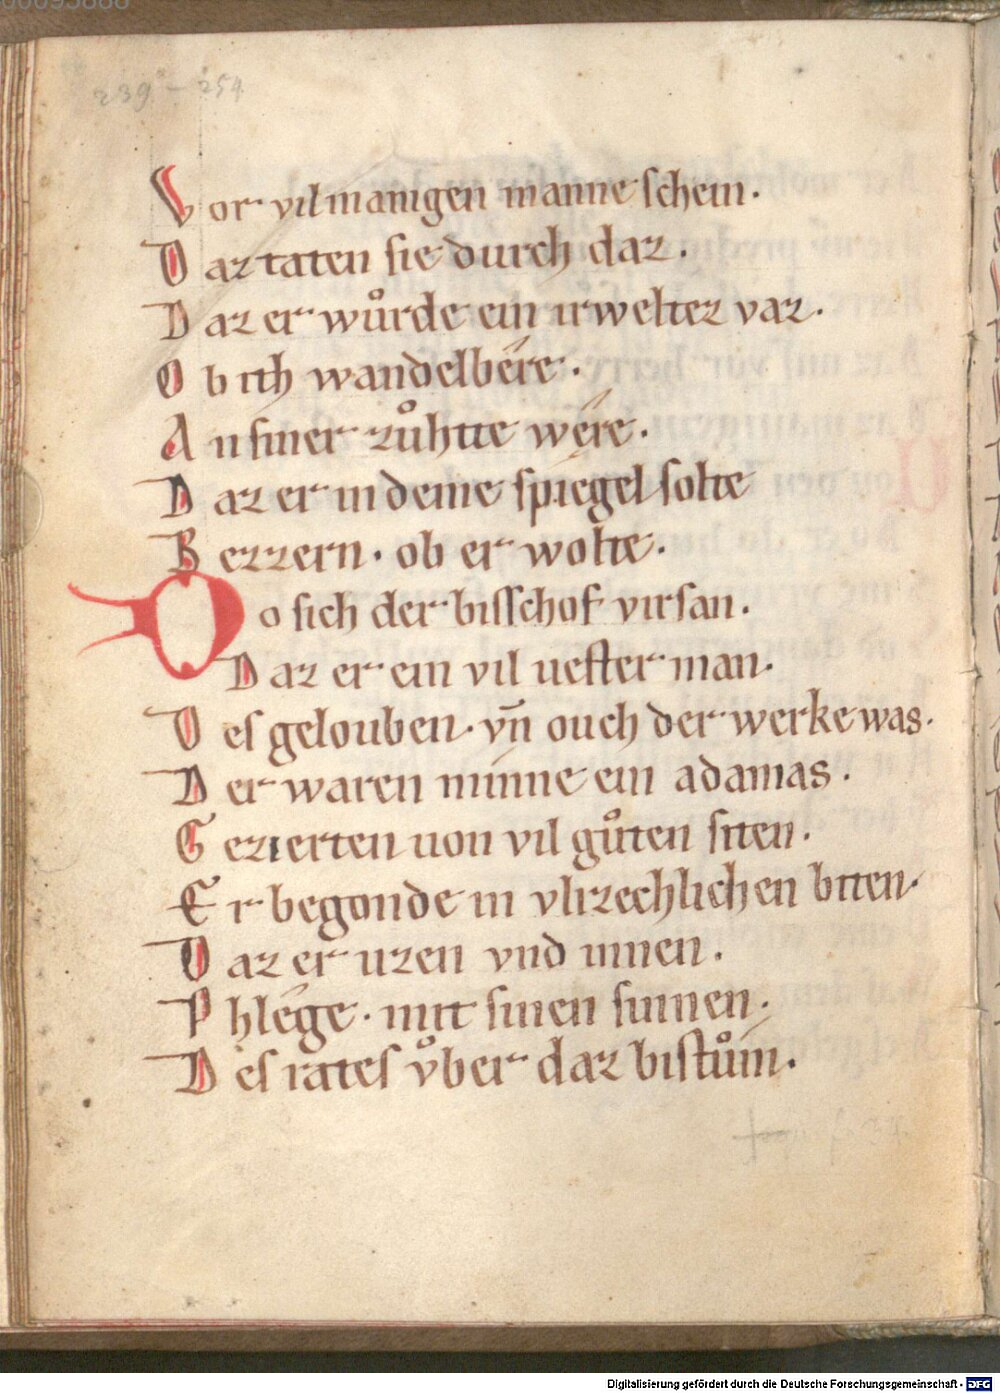 239 – 254
Vor vil manigen manne schein.
Daz taten sie durch daz.
Daz er wuͦrde ein irweltez vaz.
Ob ich wandelbére.
An siner zuͦhtte wére.
Daz er in deme spiegel solte
Bezzern. ob er wolte.
Do sich der bisschof virsan.
Daz er ein vil uester man.
Des gelouben. vn̄ ouch der werke was.
Der waren minne ein adamas.
Gezierten uon vil guͦten siten.
Er begonde in vlizechlichen biten.
Daz er uzen vnd innen.
Phlége. mit sinen sinnen.
Des rates vͦber daz bistuͦm.
Digitalisierung gefördert durch die Deutsche Forschungsgemeinschaft - DFG